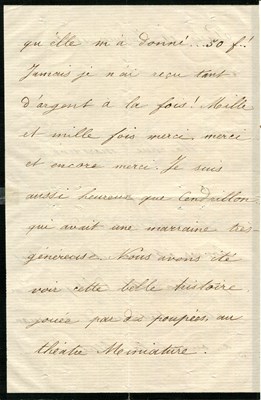 qu'elle m'a donné... 50 f.!
Jamais je n'ai reçu tant
d'argent à la fois! Mille
et mille fois merci, merci
et encore merci. Je suis
aussi heureuse que Cendrillon
qui avait une marraine très
généreuse. Nous avons été
voir cette belle histoire
jouée par des poupées, au
théâtre Miniature.